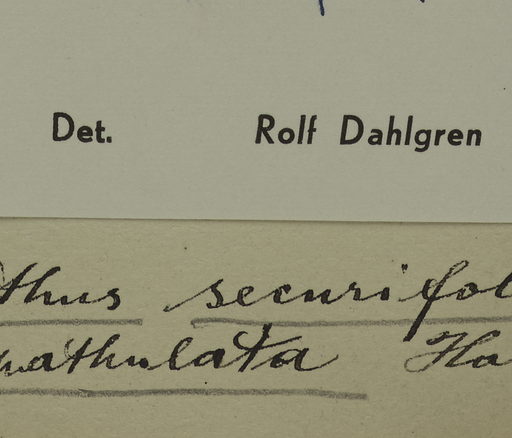 Det. Rolf Dahlgren
thus securifol
pathulata Ha